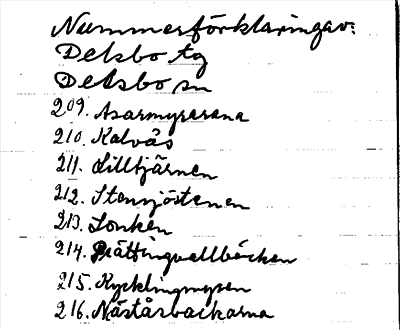 Nummerförklaringav:
Delsbo tg
Delsbo sn
209. Asarmyrarana
210. Kalvås
211. Lilltjärnen
212. Stensjöstenen
213. Lonken
214. Prättingvallbäcken
215. Kycklingmyren
216. Nåståsbackarna